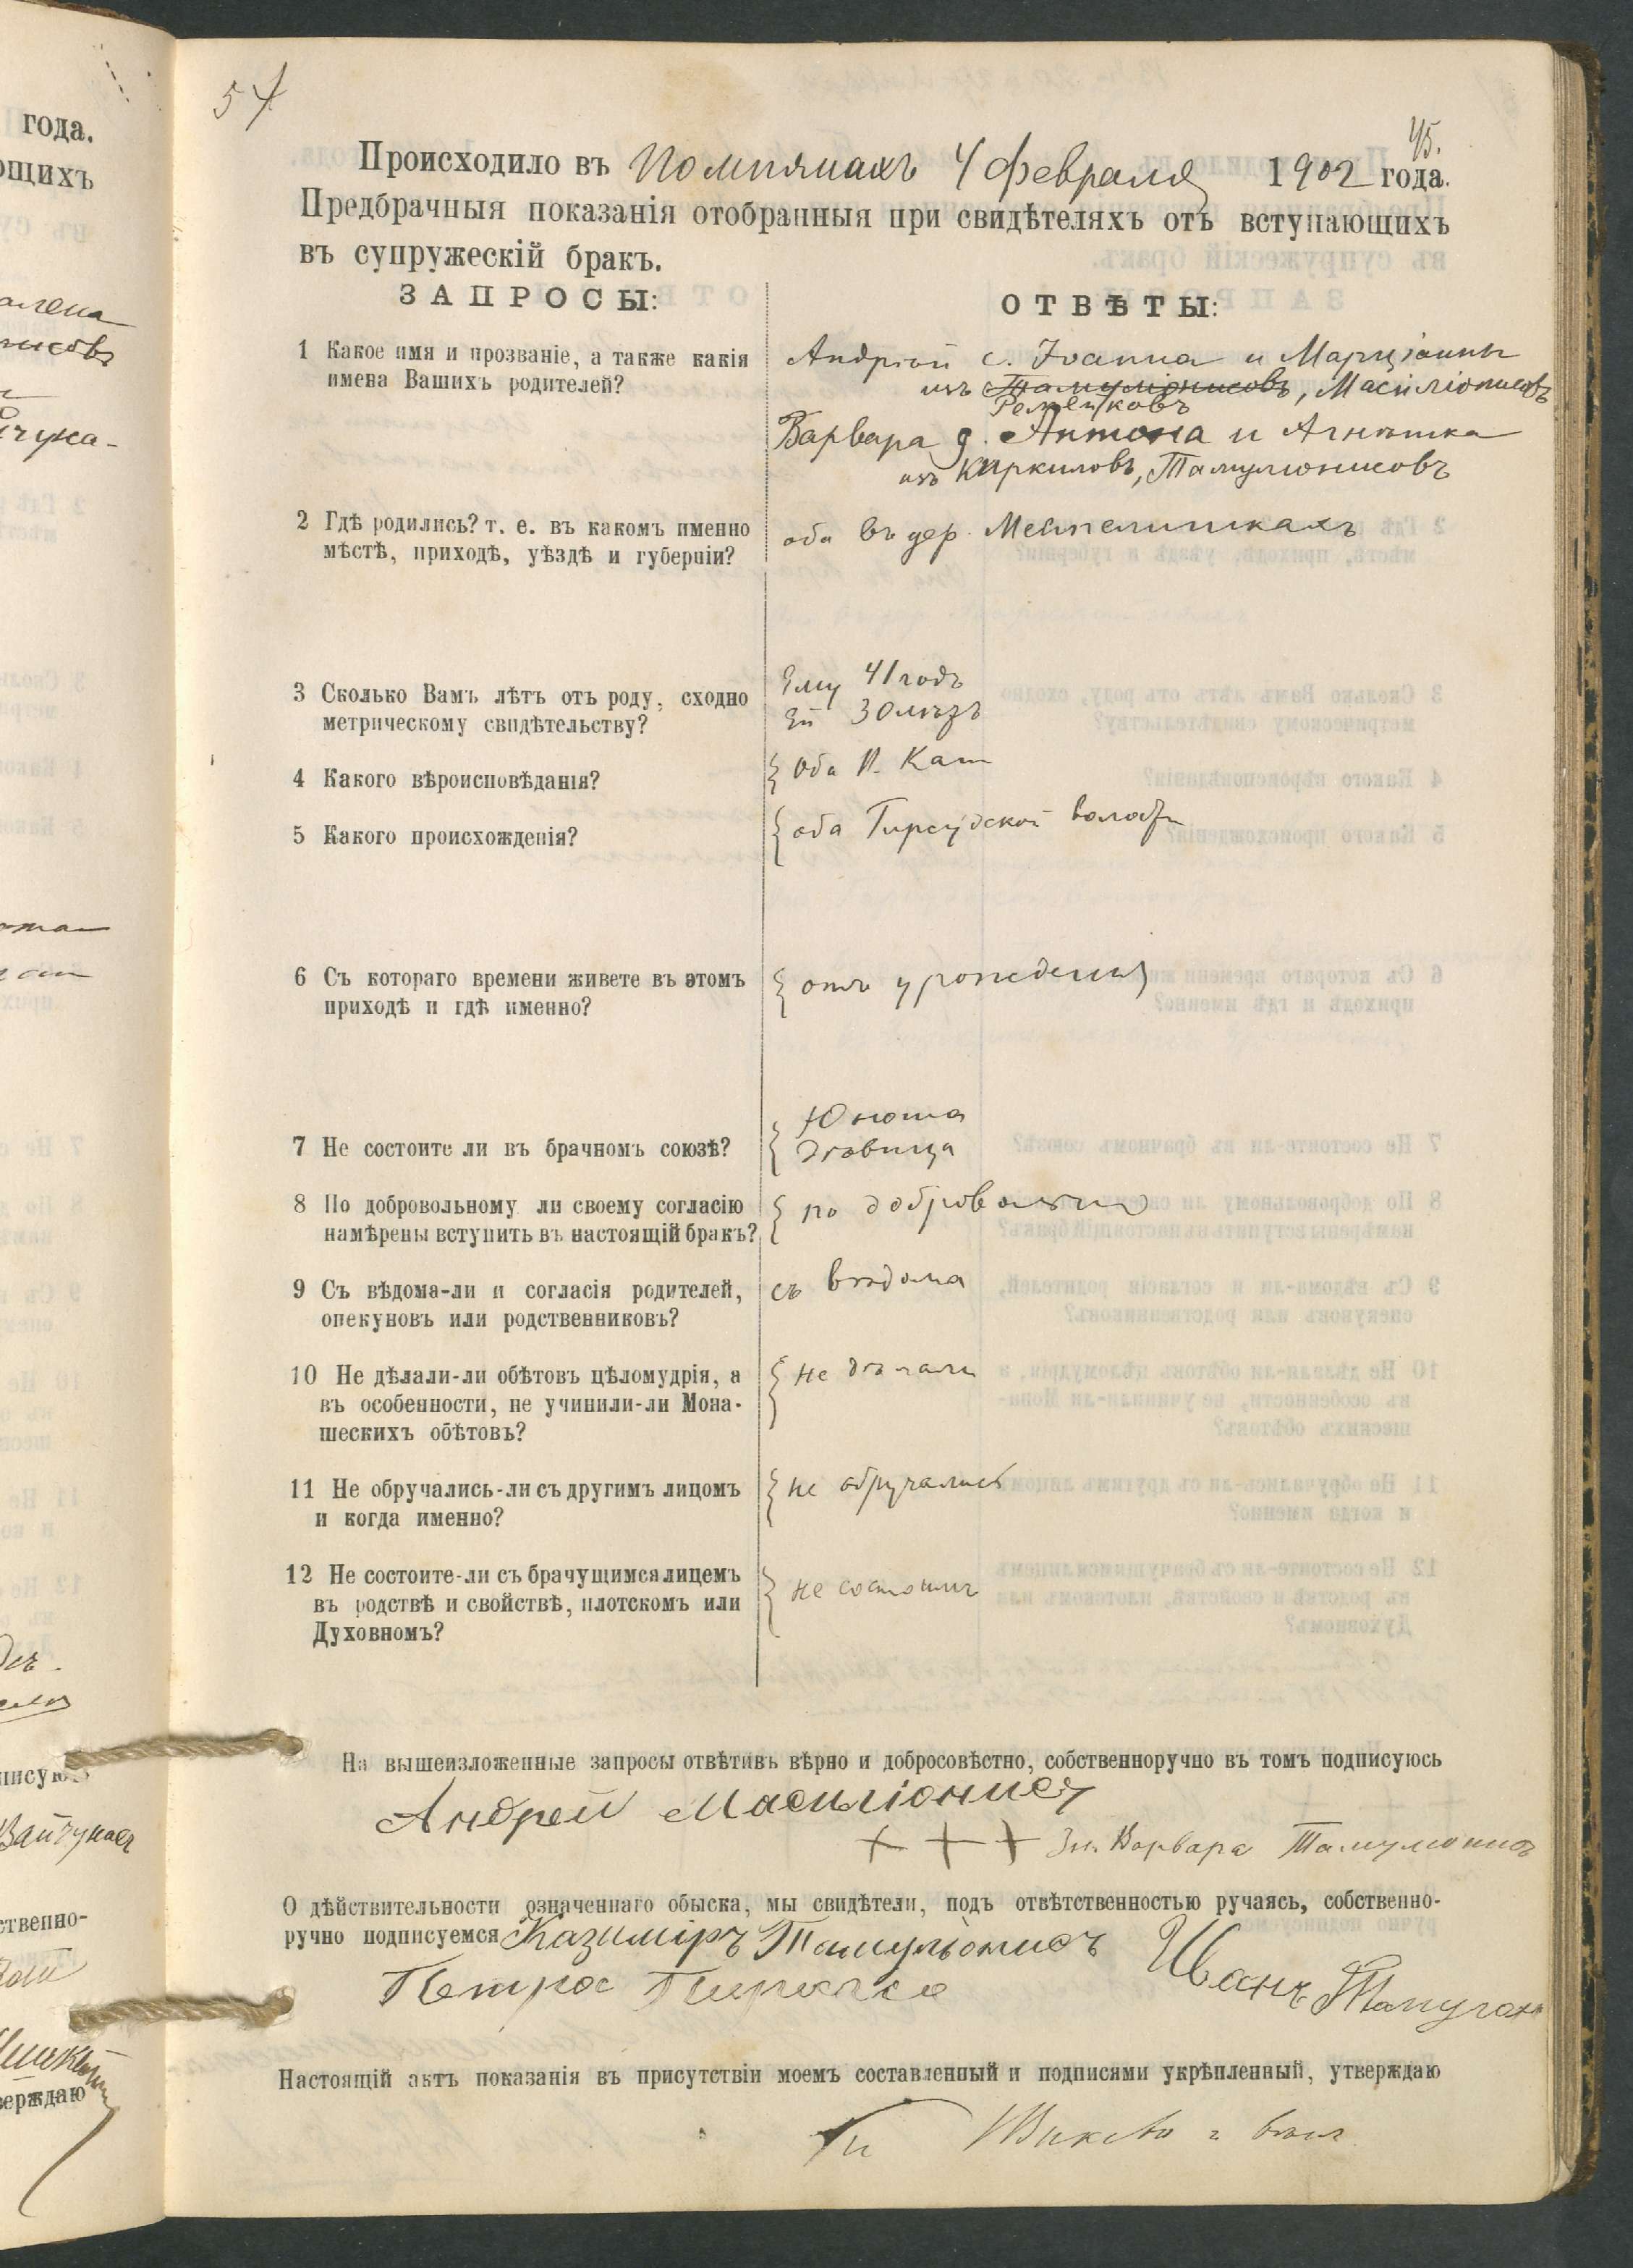 года.
ющихъ
54
45.
Происходило въ Помпянахъ 4 февраля 1902 года.
Предбрачныя показанія отобранныя при свидѣтеляхъ отъ вступающихъ
въ супружескій бракъ.
ЗАПРОСЫ:
ОТВѢТЫ:
1 Какое имя и прозваніе, а также какія
имена Вашихъ родителей?
Андрей с. Іоанна и Марціанны
изъ Тамуліонисовъ, Масиліонисовъ
Варвара д. Антона и Агнѣшка
изъ Киркиловъ, Тамулюнисовъ
2 Гдѣ родились? т. е. въ какомъ именно
мѣстѣ, приходѣ, уѣздѣ и губерніи?
оба въ дер.
3 Сколько Вамъ лѣтъ отъ роду, сходно
метрическому свидѣтельству?
Ему 41 годъ
Ей 30 лѣтъ
4 Какого вѣроисповѣданія?
Оба Р. Кат
5 Какого происхожденія?
оба Гирсудской
6 Съ котораго времени живете въ этомъ
приходѣ и гдѣ именно?
отъ урожденія
7 Не состоите ли въ брачномъ союзѣ?
Юноша
8 По добровольному ли своему согласію
намѣрены вступить въ настоящій бракъ?
по
9 Съ вѣдома-ли и согласія родителей,
опекуновъ или родственниковъ?
съ вѣдома
10 Не дѣлали-ли обѣтовъ цѣломудрія, а
въ особенности, не учинили-ли Мона-
шескихъ обѣтовъ?
не дѣлали
11 Не обручались-ли съ другимъ лицомъ
и когда именно?
не обручались
12 Не состоите-ли съ брачущимся лицемъ
въ родствѣ и свойствѣ, плотскомъ или
Духовномъ?
не состоимъ
На вышеизложенные запросы отвѣтивъ вѣрно и добросовѣстно, собственноручно въ томъ подписуюсь
Андрей Масиліонисъ
+ + + Зн. Варвара Тамулюнисъ
О дѣйствительности означеннаго обыска, мы свидѣтели, подъ отвѣтственностью ручаясь, собственно-
ручно подписуемся Казиміръ Тамульонисъ
Иванъ
Петрос
Настоящій актъ показанія въ присутствіи моемъ составленный и подписями укрѣпленный, утверждаю